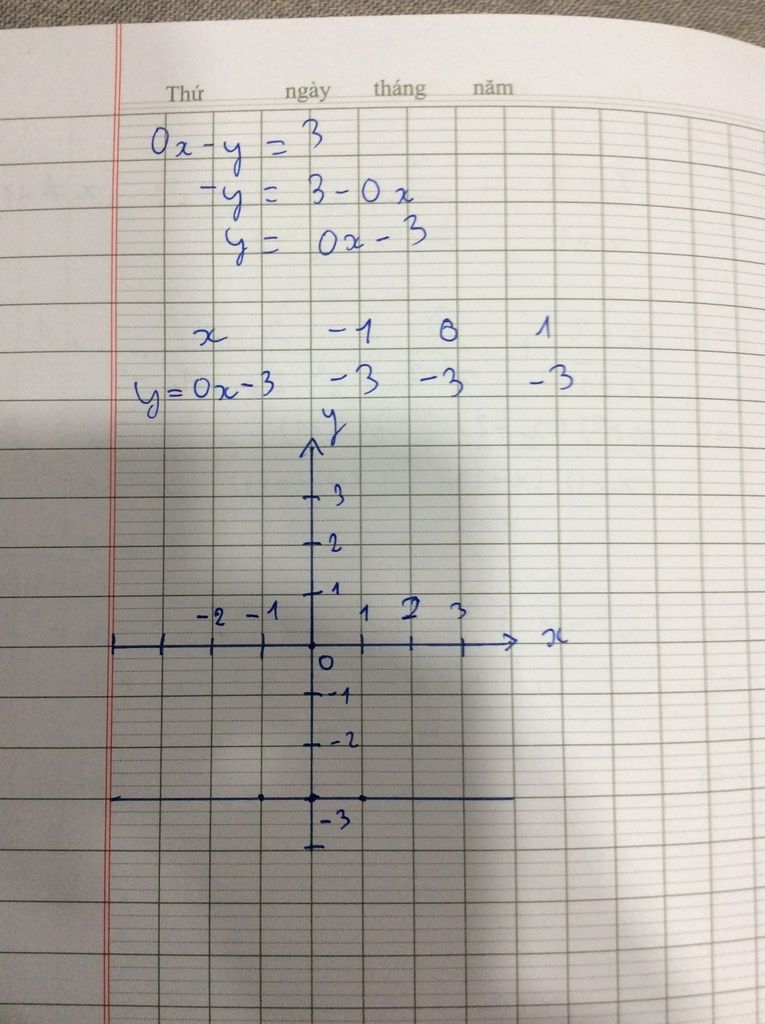 Thứ ngày tháng năm
0x - y = 3
-y = 3 - 0x
y = 0x - 3
x -1 0 1
y = 0x - 3 -3 -3 -3
y
3
2
1
-2 -1 1 2 3
x
0
-1
-2
-3